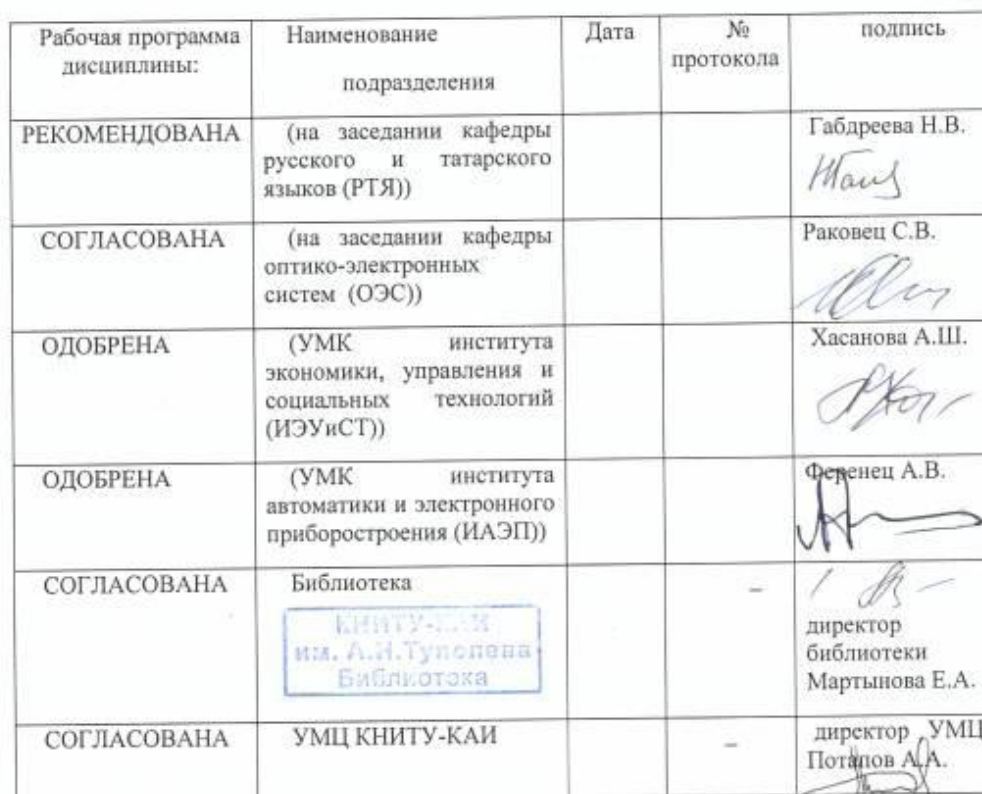 Рабочая программа
дисциплины:
Наименование
подразделения
Дата
№
протокола
подпись
РЕКОМЕНДОВАНА
(на заседании кафедры
русского и татарского
языков (РТЯ))
Габдреева Н.В.
СОГЛАСОВАНА
(на заседании кафедры
оптико-электронных
систем (ОЭС))
Раковец С.В.
ОДОБРЕНА
(УМК института
экономики, управления и
социальных технологий
(ИЭУиСТ))
Хасанова А.Ш.
ОДОБРЕНА
(УМК института
автоматики и электронного
приборостроения (ИАЭП))
Ференец А.В.
СОГЛАСОВАНА
Библиотека
КНИТУ-КАИ
им. А.Н.Туполева
Библиотека
–
директор
библиотеки
Мартынова Е.А.
СОГЛАСОВАНА
УМЦ КНИТУ-КАИ
–
директор УМЦ
Потапов А.А.